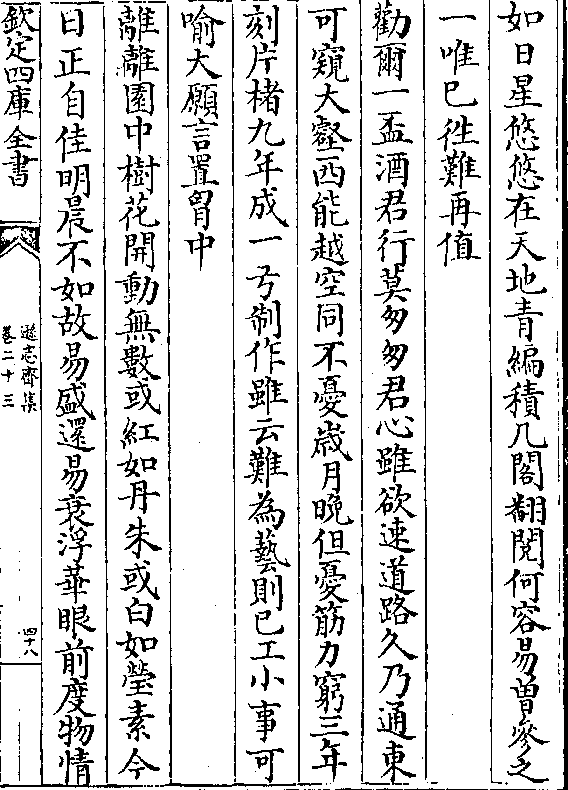 如日星悠悠在天地青編積几閣翻閱何容易曽參之
一唯已徃難再值
勸爾一盃酒君行莫匆匆君心雖欲速道路久乃通東
可窺大壑西能越空同不憂嵗月晚但憂筋力窮三年
刻片楮九年成一弓制作雖云難為藝則已工小事可
喻大願言置胷中
離離園中樹花開動無數或紅如丹朱或白如瑩素今
日正自佳明晨不如故易盛還易衰浮華眼前度物情
欽定四庫全書
遜志齋集
卷二十三
四十八